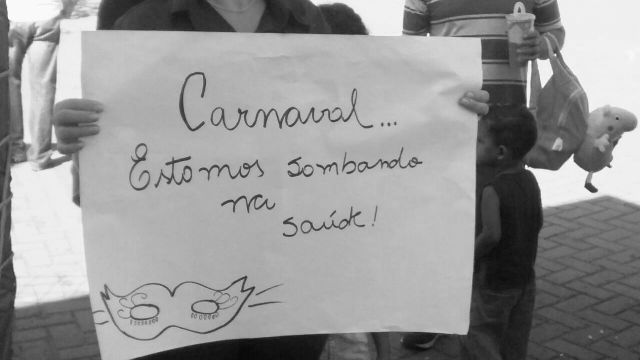 Carnaval...
Estamos sambando
na
saúde!